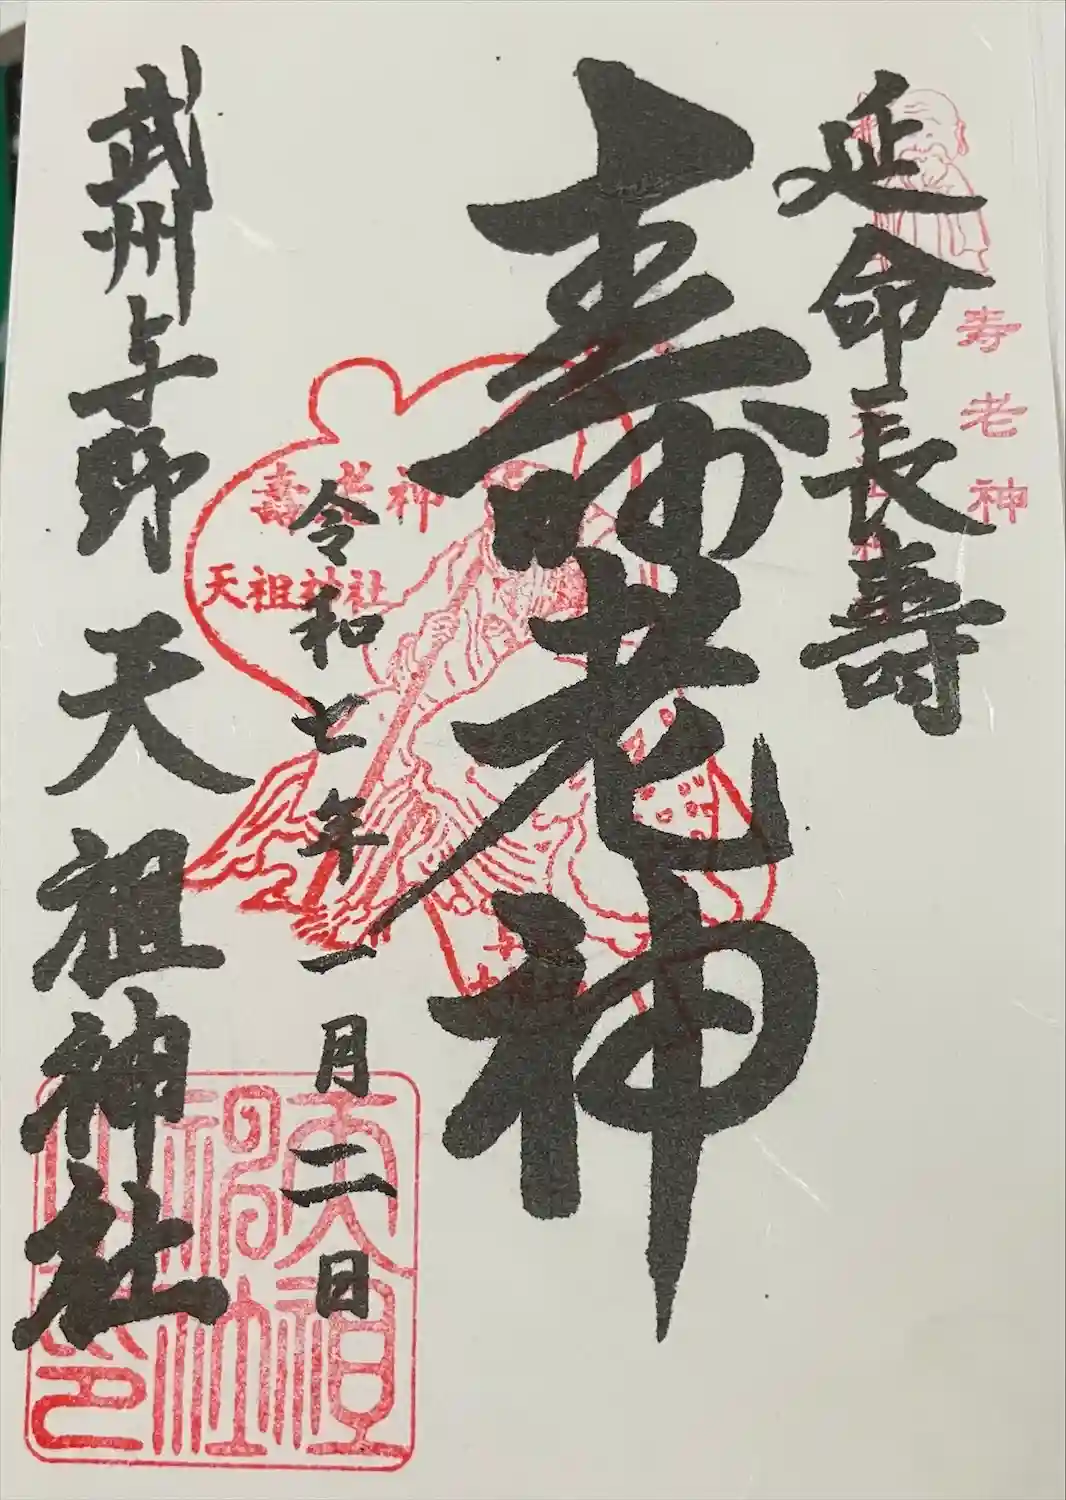 延命長壽
寿老神
壽老神
壽老神
天祖神社
令和七年一月二日
武州与野
天祖神社
天祖神社